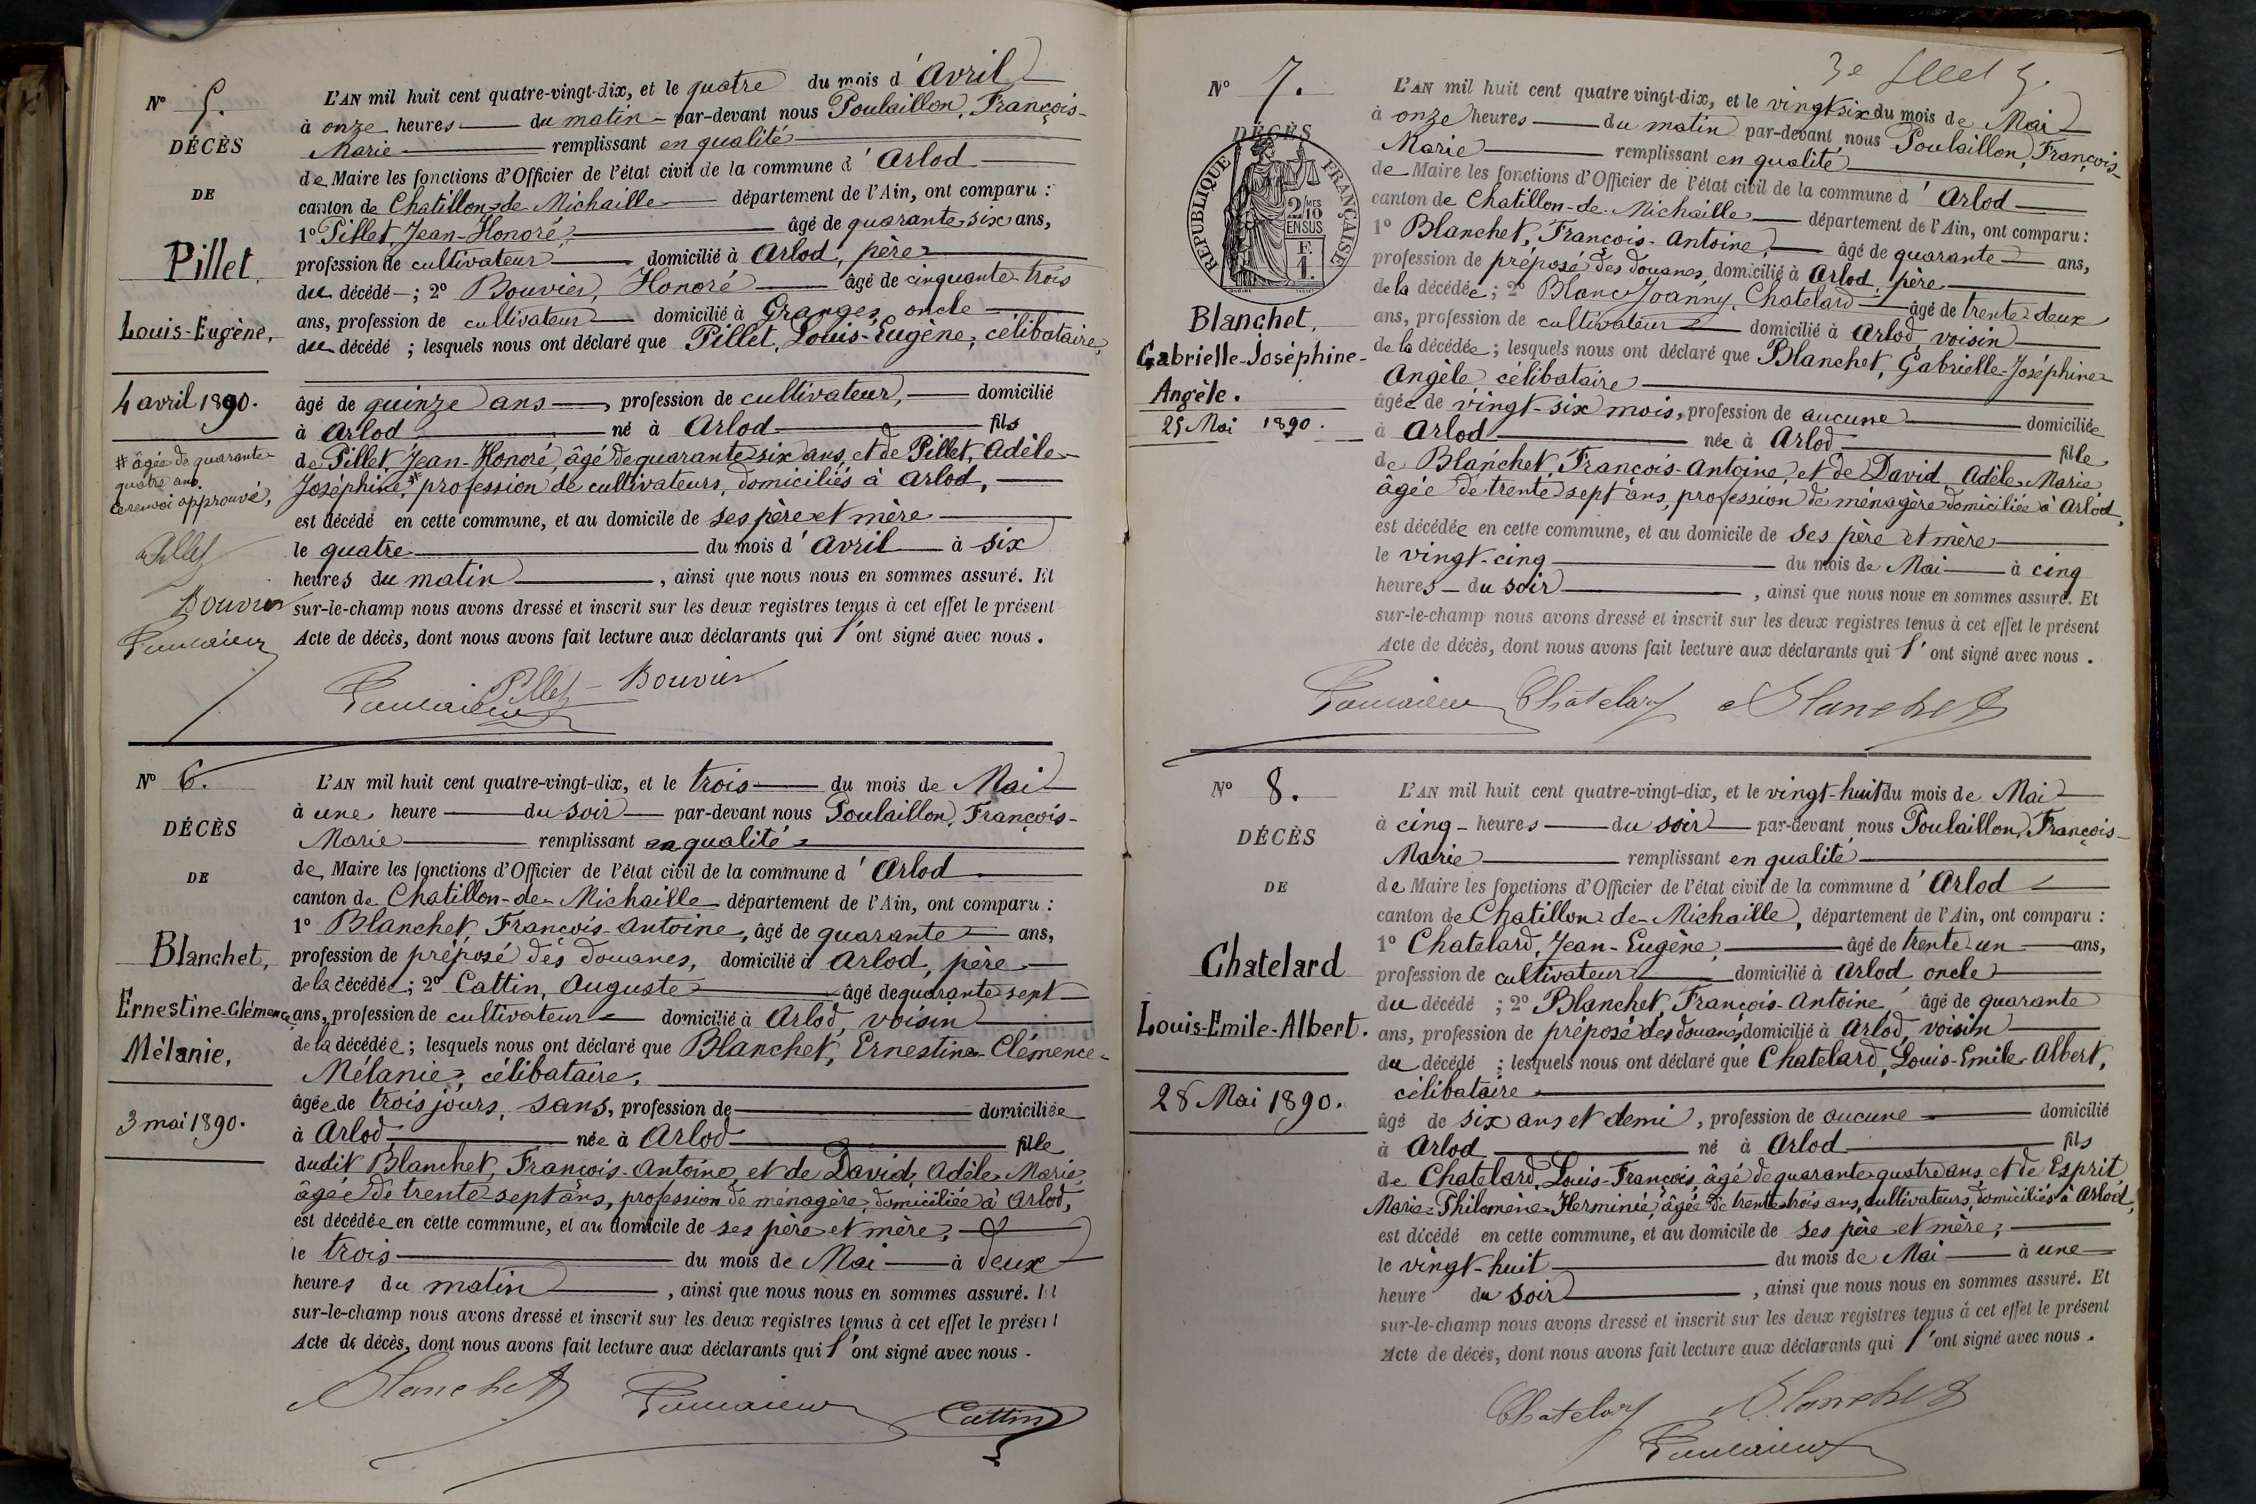 N° 5.
DÉCÈS
DE
Pillet,
Louis-Eugène,
4 avril 1890.
# âgée de quarante-
quatre ans.
ce renvoi approuvé,
Pillet
Bouvier
L'AN mil huit cent quatre-vingt-dix, et le quatre du mois d'Avril
à onze heures du matin par-devant nous Poulaillon, François-
Marie remplissant en qualité
de Maire les fonctions d'Officier de l'état civil de la commune d'Arlod
canton de Chatillon-de-Michaille département de l'Ain, ont comparu :
1° Pillet, Jean-Honoré, âgé de quarante-six ans,
profession de cultivateur domicilié à Arlod, père
du décédé ; 2° Bouvier, Honoré âgé de cinquante-trois
ans, profession de cultivateur domicilié à Granges, oncle
du décédé ; lesquels nous ont déclaré que Pillet, Louis-Eugène, célibataire,
âgé de quinze ans, profession de cultivateur, domicilié
à Arlod né à Arlod fils
de Pillet, Jean-Honoré, âgé de quarante six ans, et de Pillet, Adèle-
Joséphine, # profession de cultivateurs, domiciliés à Arlod,
est décédé en cette commune, et au domicile de ses père et mère
le quatre du mois d'Avril à six
heures du matin, ainsi que nous nous en sommes assuré. Et
sur-le-champ nous avons dressé et inscrit sur les deux registres tenus à cet effet le présent
Acte de décès, dont nous avons fait lecture aux déclarants qui l'ont signé avec nous.
Pillet Bouvier
N° 6.
DÉCÈS
DE
Blanchet,
Ernestine-Clémence
Mélanie,
3 mai 1890.
L'AN mil huit cent quatre-vingt-dix, et le trois du mois de Mai
à une heure du soir par-devant nous Poulaillon, François-
Marie remplissant en qualité
de Maire les fonctions d'Officier de l'état civil de la commune d'Arlod
canton de Chatillon-de-Michaille département de l'Ain, ont comparu :
1° Blanchet, François-Antoine, âgé de quarante ans,
profession de préposé des douanes, domicilié à Arlod, père
de la décédée ; 2° Cattin, Auguste âgé de quarante sept
ans, profession de cultivateur domicilié à Arlod, voisin
de la décédée ; lesquels nous ont déclaré que Blanchet, Ernestine-Clémence-
Mélanie, célibataire,
âgée de trois jours, sans, profession de domiciliée
à Arlod née à Arlod fille
dudit Blanchet, François-Antoine, et de David, Adèle-Marie,
âgée de trente sept ans, profession de ménagère, domiciliée à Arlod,
est décédée en cette commune, et au domicile de ses père et mère,
le trois du mois de Mai à deux
heures du matin, ainsi que nous nous en sommes assuré. Et
sur-le-champ nous avons dressé et inscrit sur les deux registres tenus à cet effet le présent
Acte de décès, dont nous avons fait lecture aux déclarants qui l'ont signé avec nous.
Blanchet Cattin
N° 7.
DÉCÈS
RÉPUBLIQUE FRANÇAISE
2/MES
10
EN SUS
E
1.
Blanchet,
Gabrielle-Joséphine-
Angèle.
25 Mai 1890.
L'AN mil huit cent quatre vingt-dix, et le vingt-six du mois de Mai
à onze heures du matin par-devant nous Poulaillon, François-
Marie remplissant en qualité
de Maire les fonctions d'Officier de l'état civil de la commune d'Arlod
canton de Chatillon-de-Michaille département de l'Ain, ont comparu :
1° Blanchet, François-Antoine, âgé de quarante ans,
profession de préposé des douanes, domicilié à Arlod, père
de la décédée ; 2° Blanc Joanny Chatelard âgé de trente-deux
ans, profession de cultivateur domicilié à Arlod, voisin
de la décédée ; lesquels nous ont déclaré que Blanchet, Gabrielle-Joséphine-
Angèle, célibataire
âgée de vingt-six mois, profession de aucune domiciliée
à Arlod née à Arlod fille
de Blanchet, François-Antoine, et de David, Adèle-Marie
âgée de trente sept ans, profession de ménagère domiciliée à Arlod,
est décédée en cette commune, et au domicile de ses père et mère
le vingt-cinq du mois de Mai à cinq
heures du soir, ainsi que nous nous en sommes assuré. Et
sur-le-champ nous avons dressé et inscrit sur les deux registres tenus à cet effet le présent
Acte de décès, dont nous avons fait lecture aux déclarants qui l'ont signé avec nous.
Chatelard Blanchet
N° 8.
DÉCÈS
DE
Chatelard
Louis-Emile-Albert.
28 Mai 1890.
L'AN mil huit cent quatre-vingt-dix, et le vingt-huit du mois de Mai
à cinq heures du soir par-devant nous Poulaillon, François-
Marie remplissant en qualité
de Maire les fonctions d'Officier de l'état civil de la commune d'Arlod
canton de Chatillon-de-Michaille, département de l'Ain, ont comparu :
1° Chatelard, Jean-Eugène, âgé de trente-un ans,
profession de cultivateur domicilié à Arlod oncle
du décédé ; 2° Blanchet, François-Antoine âgé de quarante
ans, profession de préposé des douanes domicilié à Arlod, voisin
du décédé ; lesquels nous ont déclaré que Chatelard, Louis-Emile-Albert,
célibataire
âgé de six ans et demi, profession de aucune domicilié
à Arlod né à Arlod fils
de Chatelard, Louis-François, âgé de quarante-quatre ans, et de Esprit,
Marie-Philomène-Herminie, âgée de trente-trois ans, cultivateurs, domiciliés à Arlod,
est décédé en cette commune, et au domicile de ses père et mère,
le vingt-huit du mois de Mai à une
heure du soir, ainsi que nous nous en sommes assuré. Et
sur-le-champ nous avons dressé et inscrit sur les deux registres tenus à cet effet le présent
Acte de décès, dont nous avons fait lecture aux déclarants qui l'ont signé avec nous.
Chatelard Blanchet